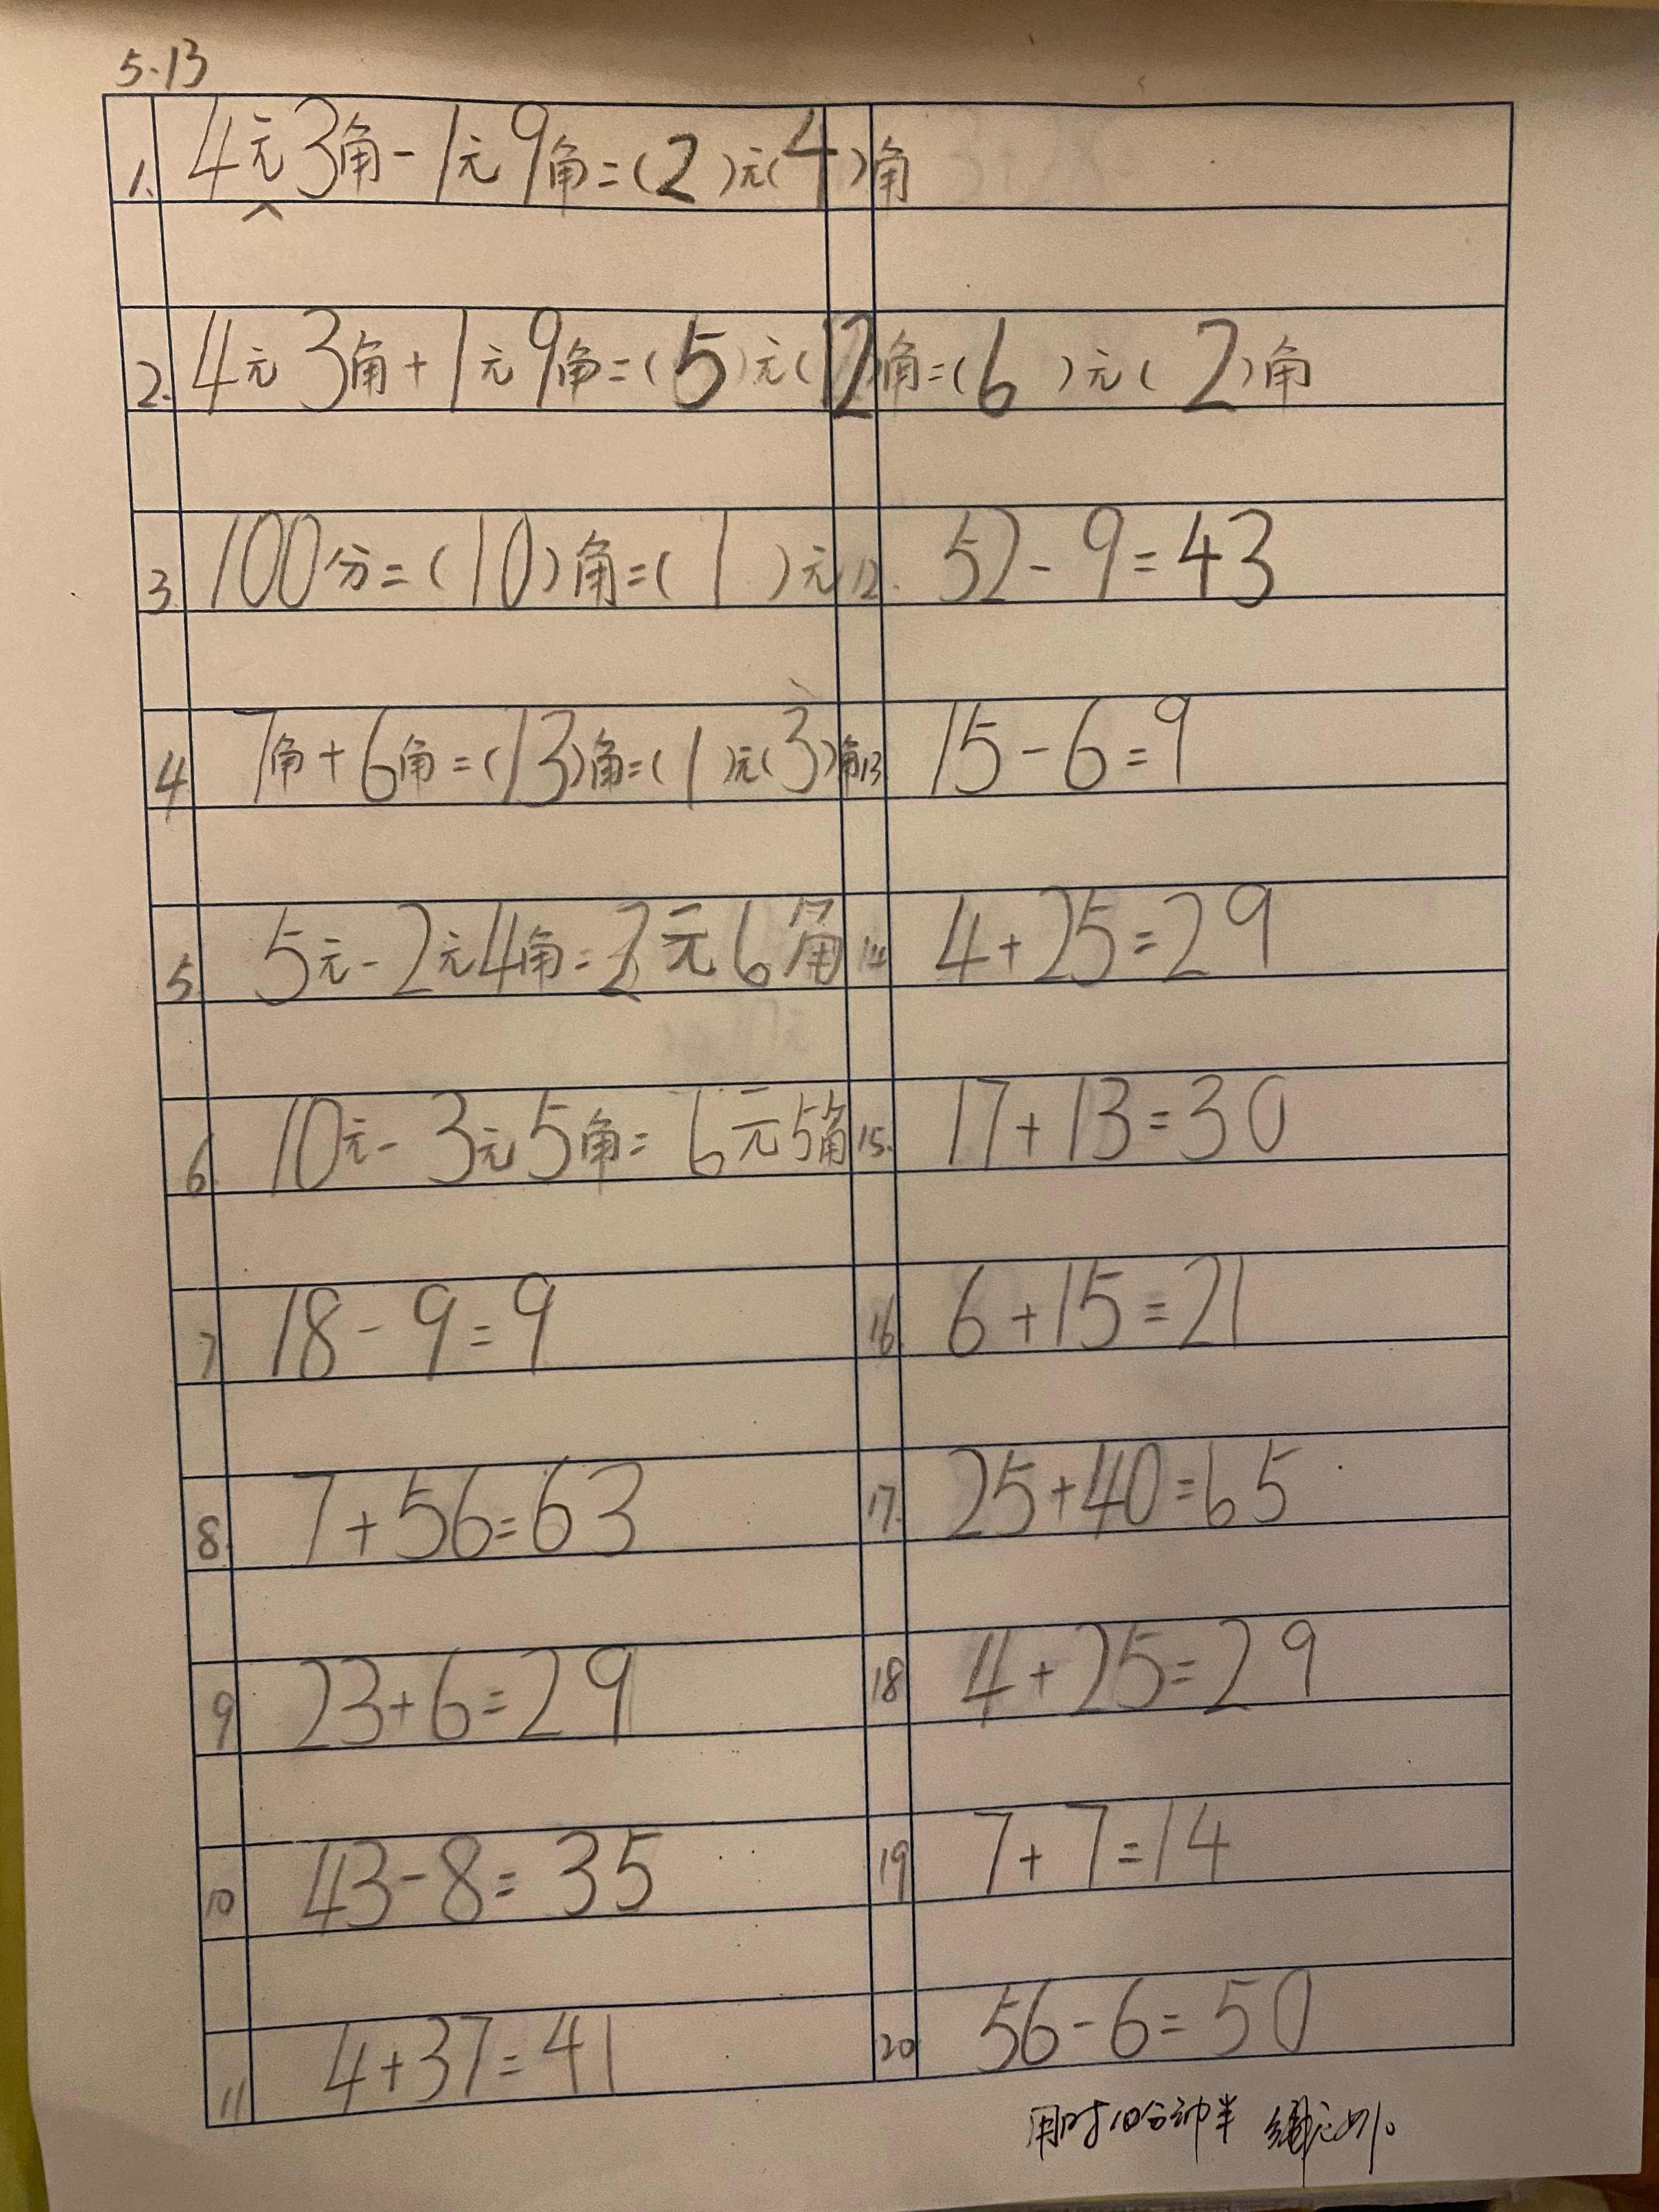 5.13
1. 4元3角-1元9角=(2)元(4)角
2. 4元3角+1元9角=(5)元(12)角=(6)元(2)角
3. 100分=(10)角=(1)元
4 7角+6角=(13)角=(1)元(3)角
5. 5元-2元4角=2元6角
6. 10元-3元5角=6元5角
7 18-9=9
8. 7+56=63
9 23+6=29
10 43-8=35
11 4+37=41
12. 52-9=43
13 15-6=9
14 4+25=29
15. 17+13=30
16. 6+15=21
17. 25+40=65
18 4+25=29
19 7+7=14
20 56-6=50
用时10分钟半